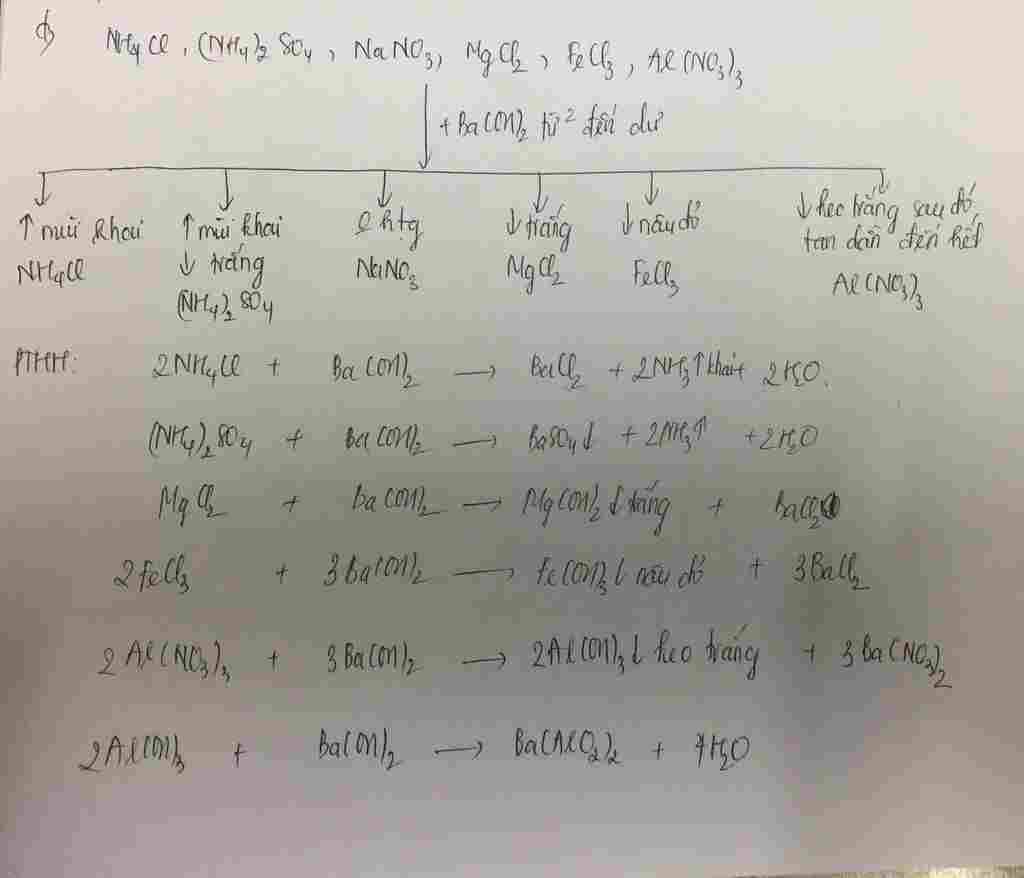 NH4Cl, (NH4)2SO4, NaNO3, MgCl2, FeCl3, Al(NO3)3
+ Ba(OH)2 từ² đến dư
↑ mùi khai
NH4Cl
↑ mùi khai
↓ trắng
(NH4)2SO4
ko htg
NaNO3
↓ trắng
MgCl2
↓ nâu đỏ
FeCl3
↓ keo trắng sau đó
tan dần đến hết
Al(NO3)3
PTHH: 2NH4Cl + Ba(OH)2 → BaCl2 + 2NH3↑ khai + 2H2O.
(NH4)2SO4 + Ba(OH)2 → BaSO4↓ + 2NH3↑ + 2H2O
MgCl2 + Ba(OH)2 → Mg(OH)2↓ trắng + BaCl2
2FeCl3 + 3Ba(OH)2 → Fe(OH)3↓ nâu đỏ + 3BaCl2
2Al(NO3)3 + 3Ba(OH)2 → 2Al(OH)3↓ keo trắng + 3Ba(NO3)2
2Al(OH)3 + Ba(OH)2 → Ba(AlO2)2 + 4H2O